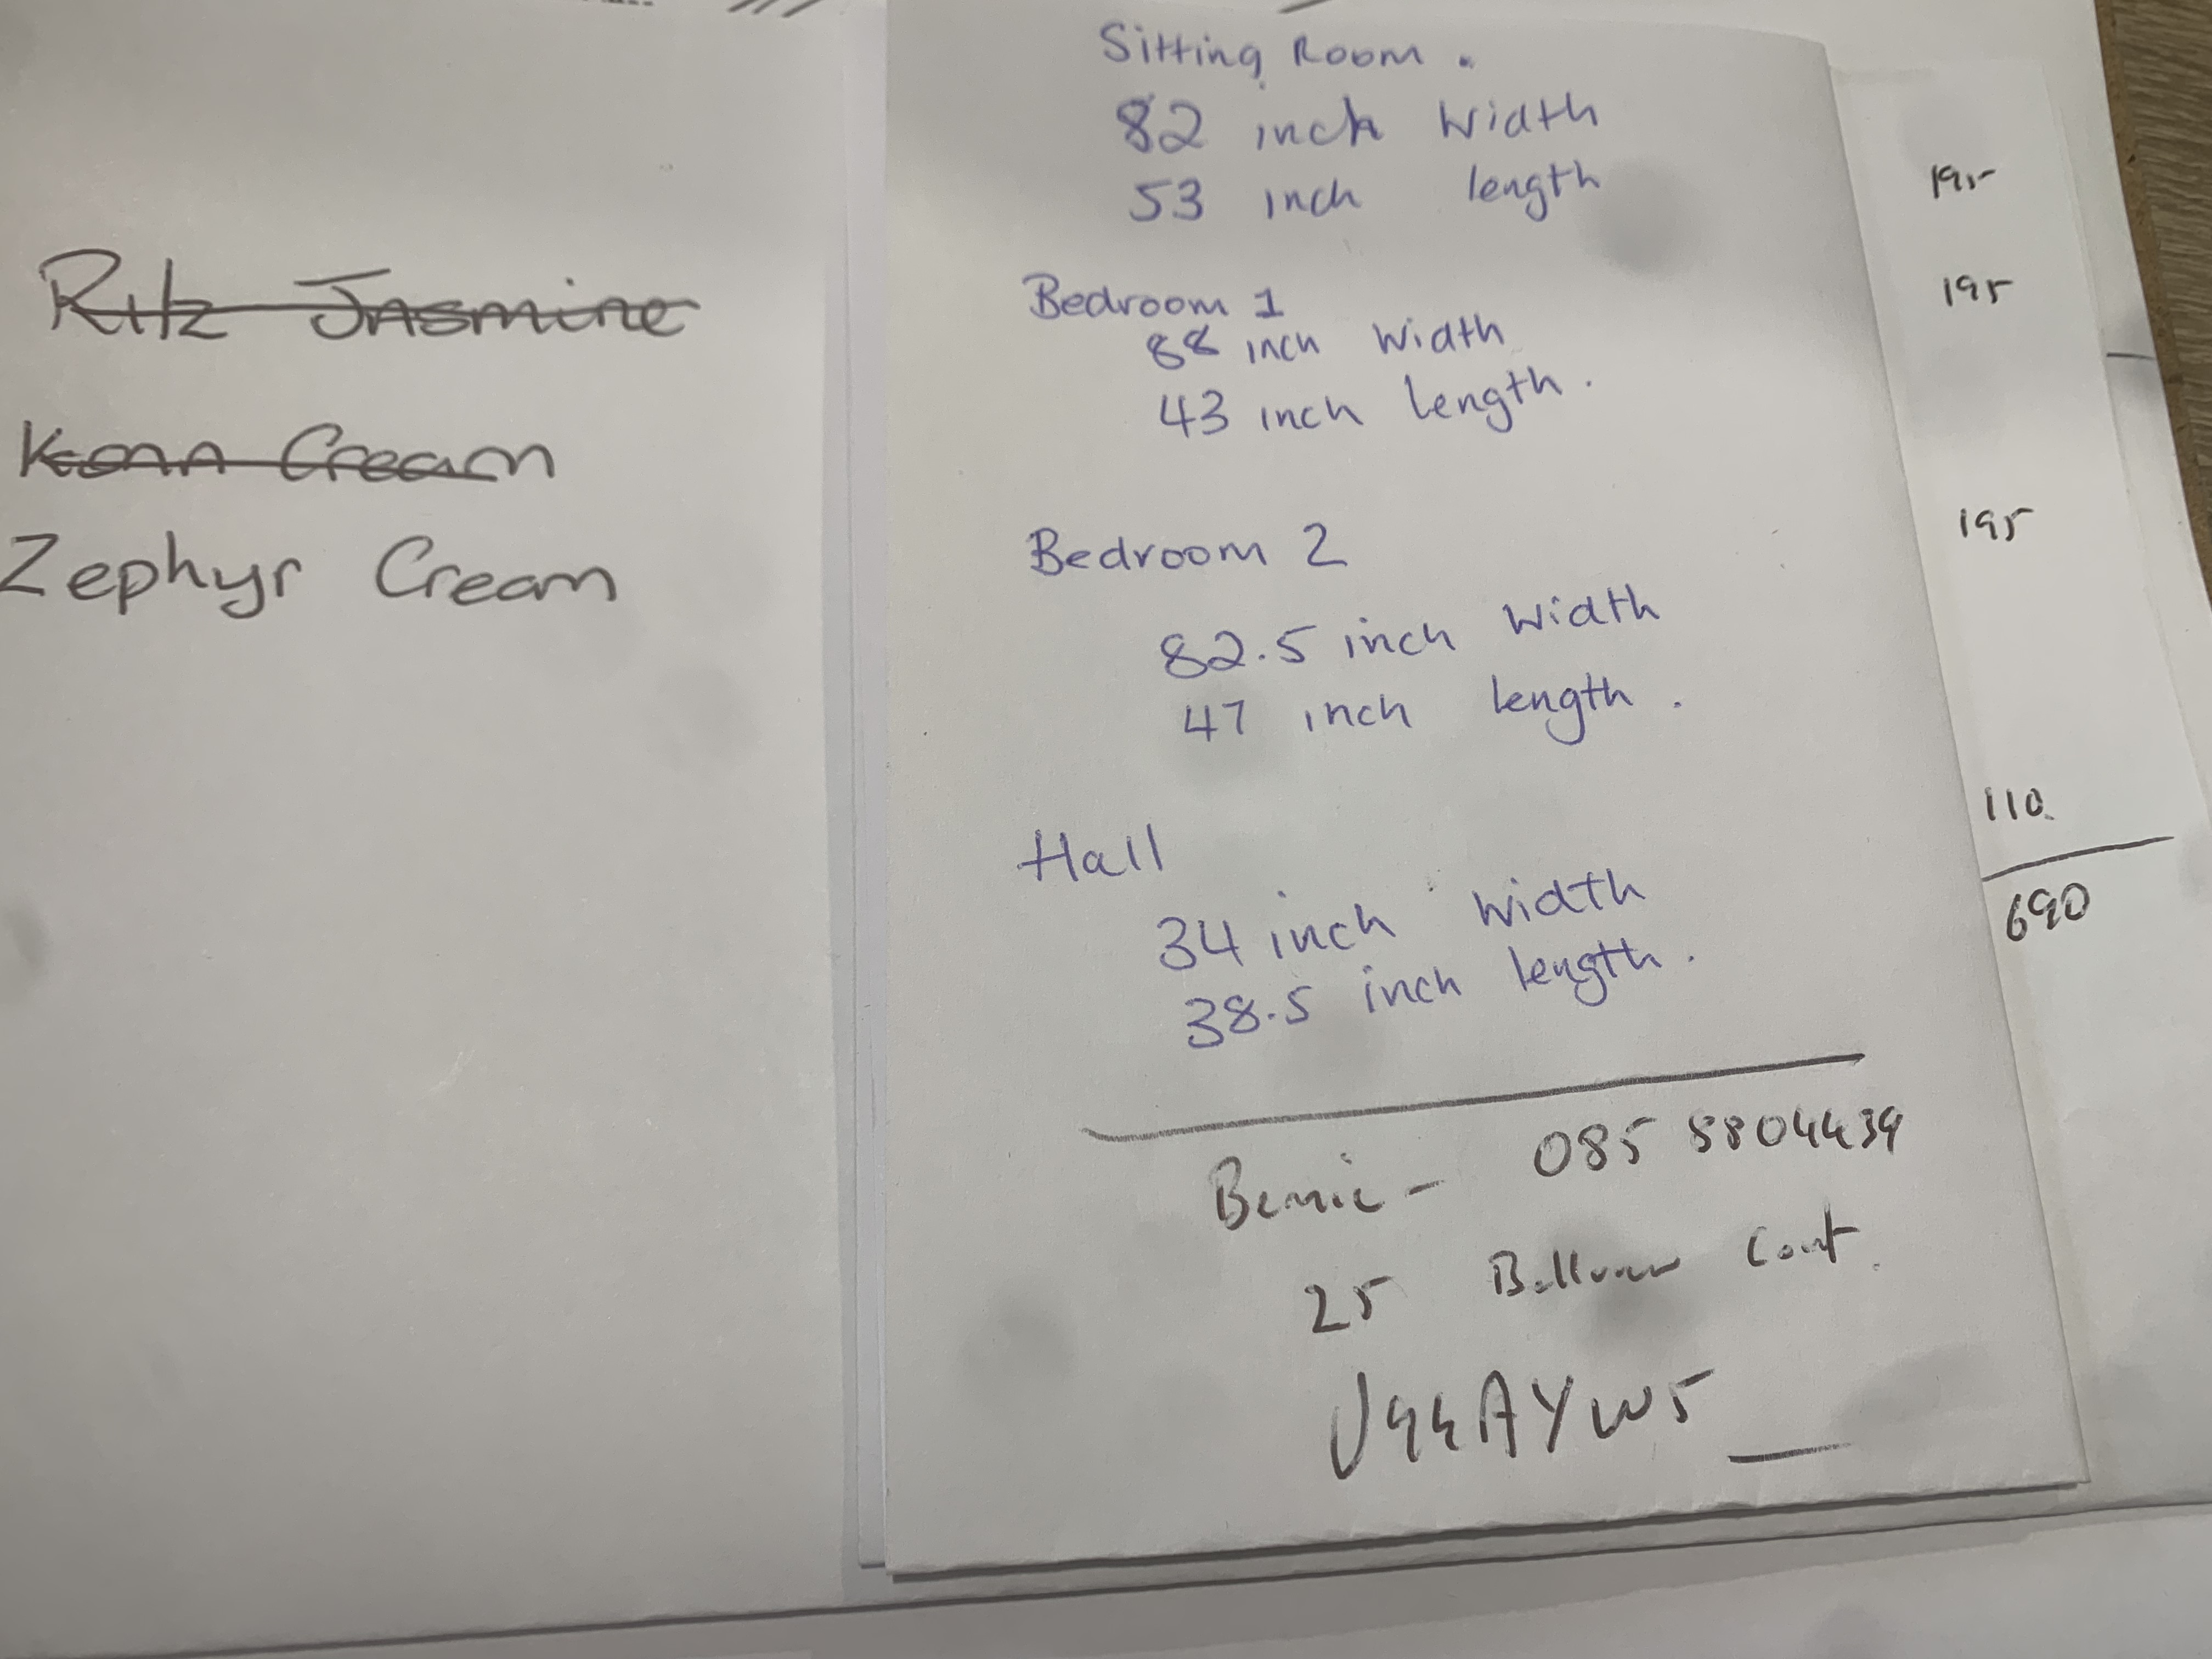 Ritz Jasmine
Kenn Cream
Zephyr Cream
Sitting Room.
82 inch width
53 inch length
195
Bedroom 1
195
88 inch width
43 inch length.
Bedroom 2
195
82.5 inch width
47 inch length.
Hall
110
34 inch width
690
38.5 inch length.
Bernie - 085 8804439
25 Court.